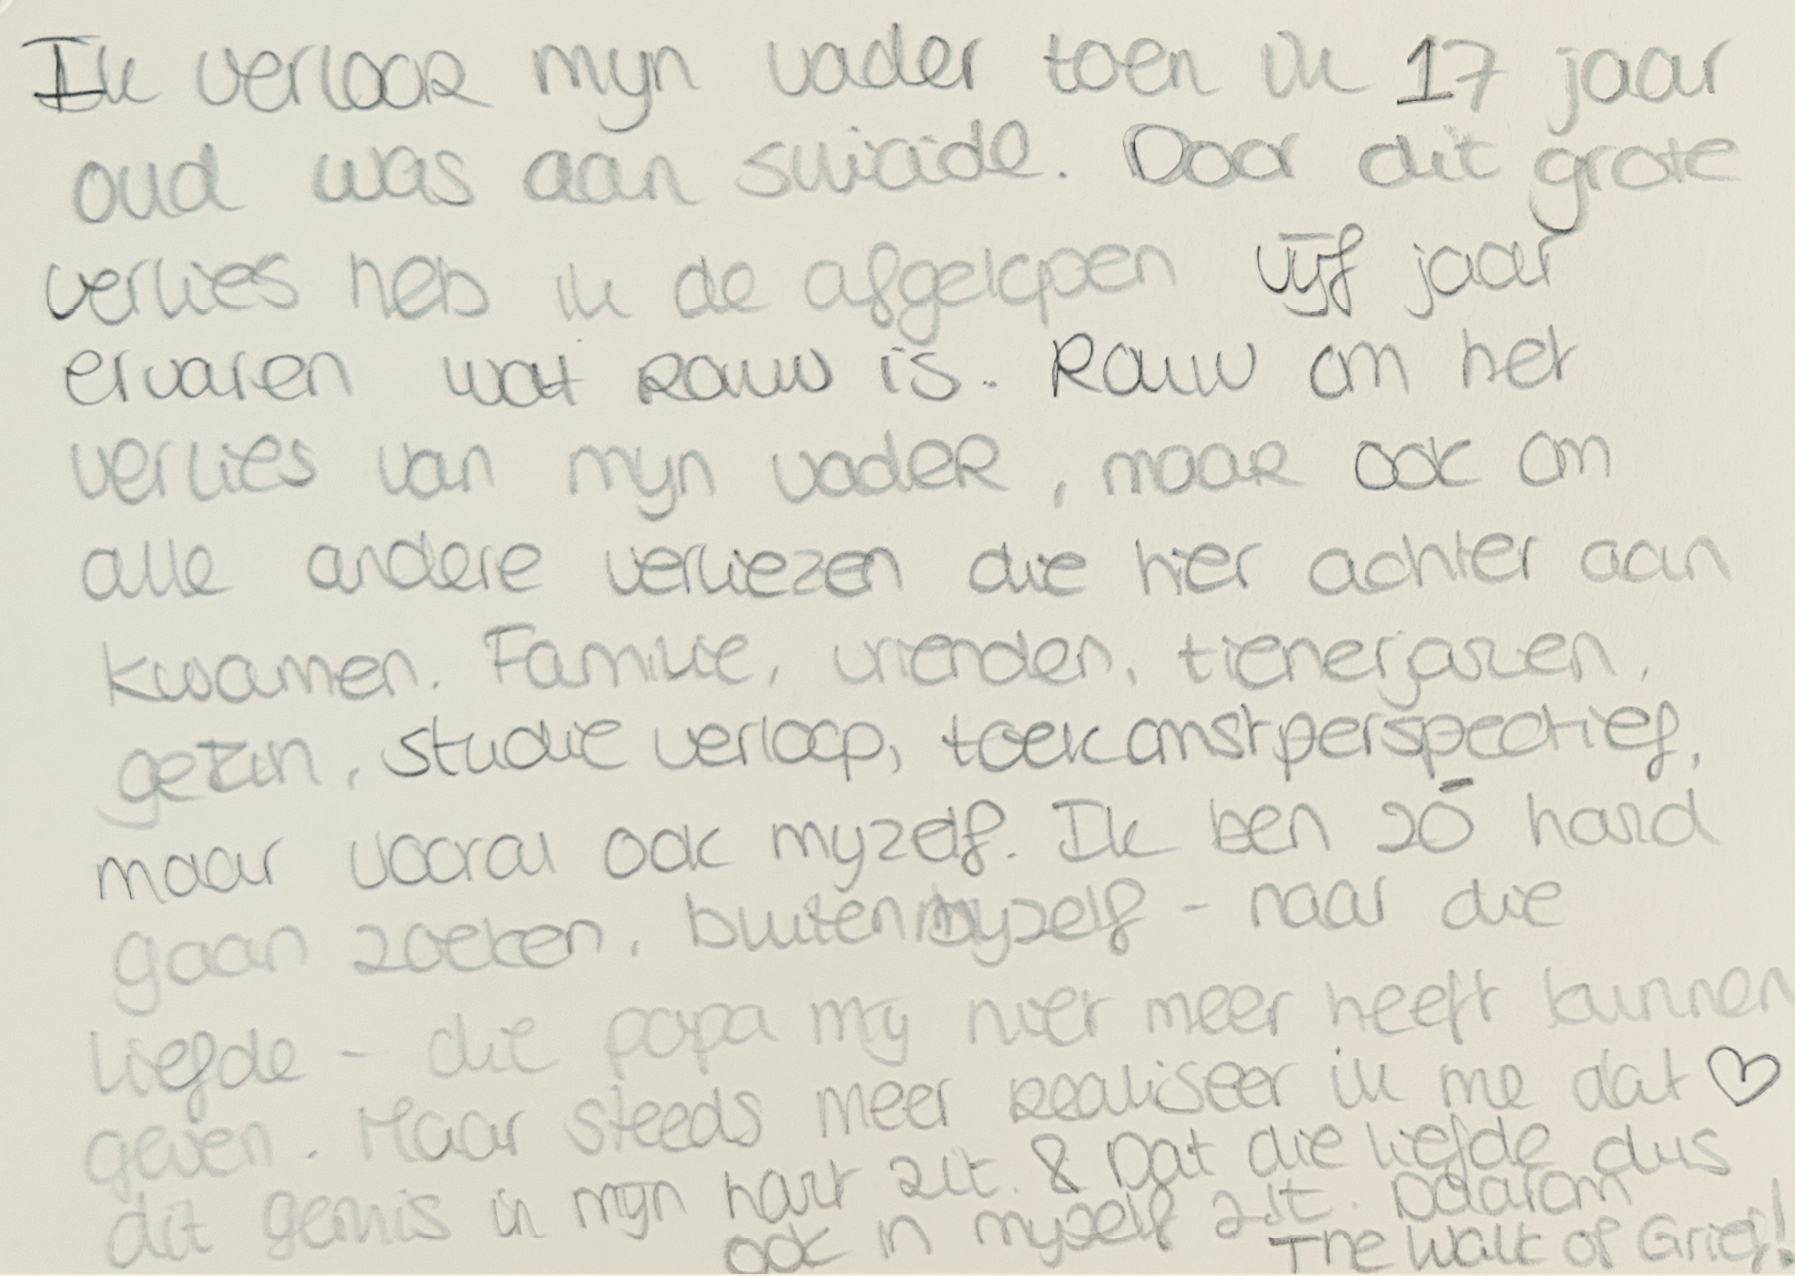 Ik verloor mijn vader toen ik 17 jaar
oud was aan suïcide. Door dit grote
verlies heb ik de afgelopen vijf jaar
ervaren wat rouw is. Rouw om het
verlies van mijn vader, maar ook om
alle andere verliezen die hier achter aan
kwamen. Familie, vrienden, tienerjaren,
gezin, studie verloop, toekomstperspectief,
maar vooral ook mijzelf. Ik ben zó hard
gaan zoeken, buiten mijzelf - naar die
liefde - die papa mij niet meer heeft kunnen
geven. Maar steeds meer realiseer ik me dat ♡
dit gemis in mijn hart zit. & Dat die liefde dus
ook in mijzelf zit. Daarom
The Walk of Grief!